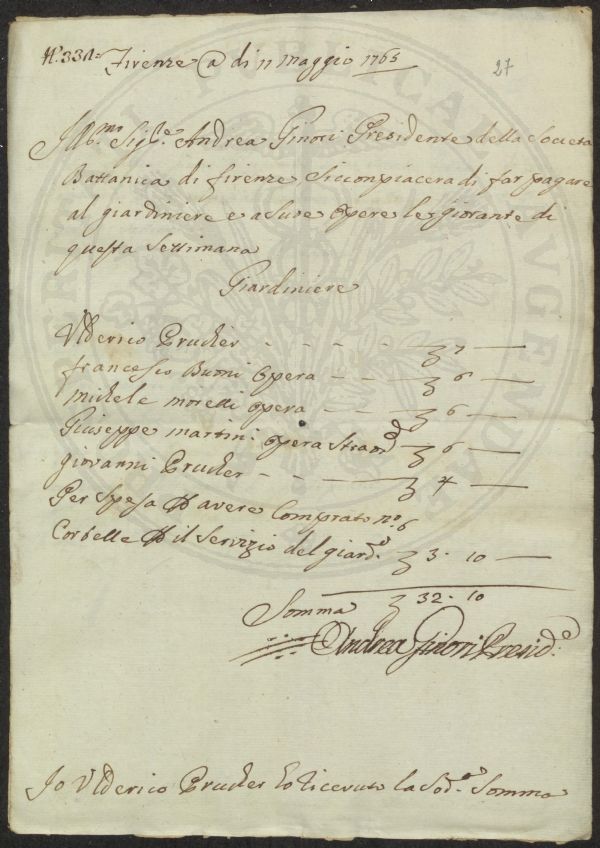 N.° 331= Firenze @ di 11 Maggio 1765
27
Ill.mo Sig.re Andrea Ginori Presidente della Societa
Bottanica di firenze si compiacera di far pagare
al giardiniere e a sue opere le giornate di
questa settimana
Giardiniere
Ulderico Prucker - - - - - 7 —
francesco Buoni opera - - - 6 —
michele moretti opera - - - 6 —
Giuseppe martini opera straord 6 —
giovanni Prucker - - - 4 —
Per spesa d avere Comprato n.° 6
Corbelle p il servizio del giard.o 3. 10 —
Somma 32. 10
Andrea Ginori Presid.e
Io Ulderico Prucker ho ricevuto la Sod.a Somma